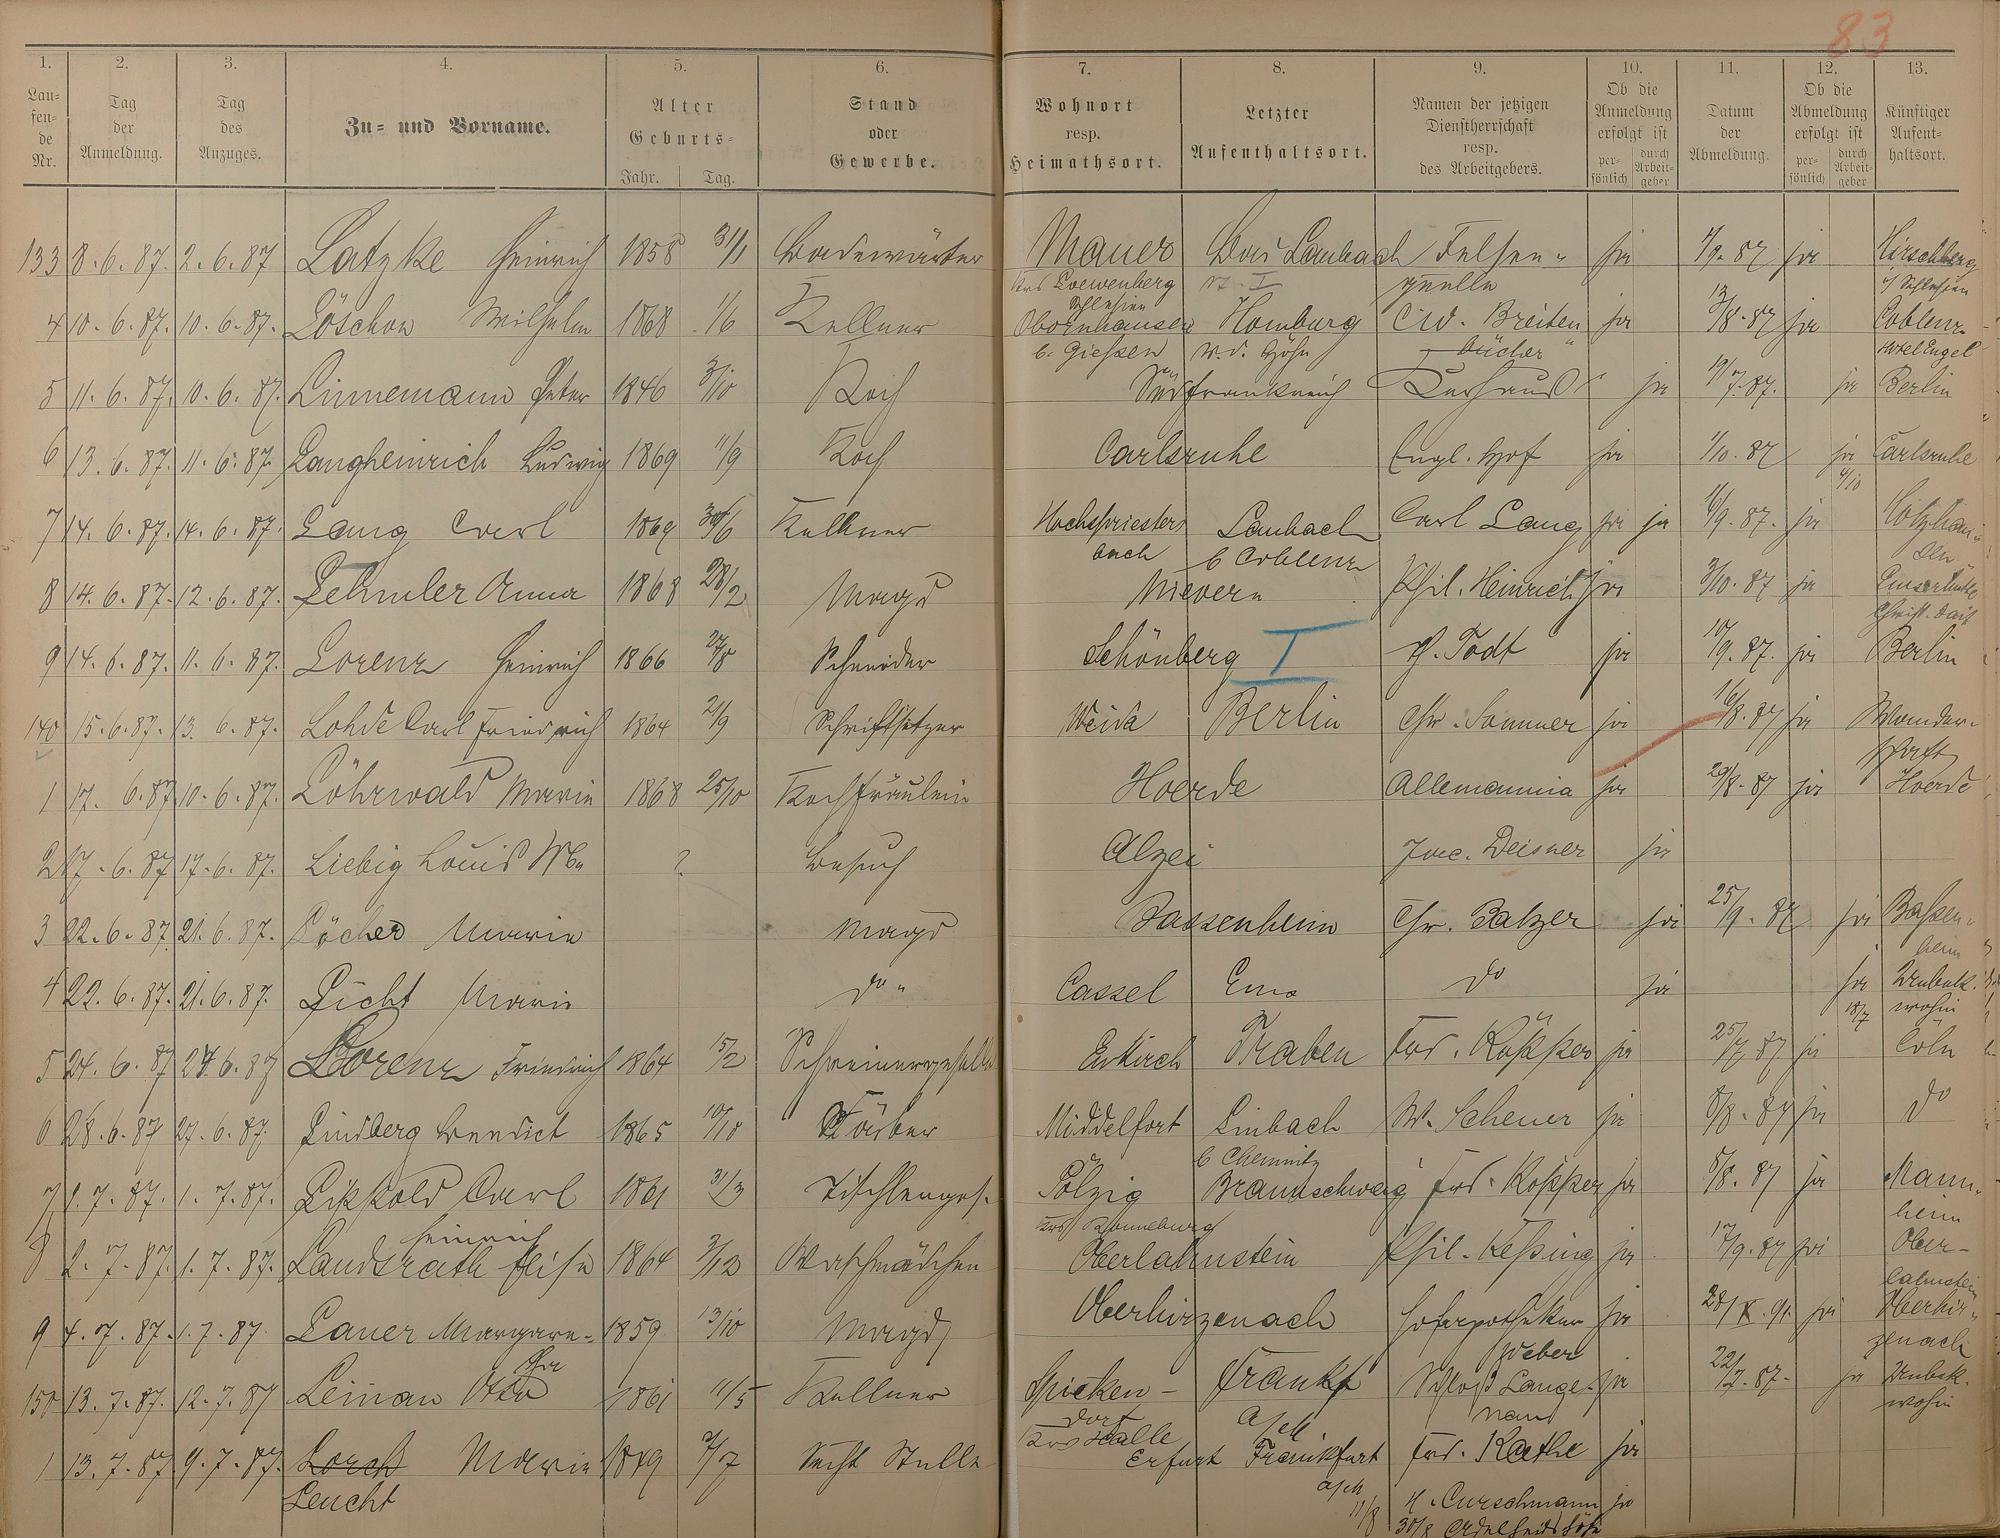 83
1. 2. 3. 4. 5. 6. 7. 8. 9. 10. 11. 12. 13.
Lau=fen=de Nr. Tag der Anmeldung. Tag des Anzuges. Zu= und Vorname. Alter Geburts= Jahr. Tag. Stand oder Gewerbe. Wohnort resp. Heimathsort. Letzter Aufenthaltsort. Namen der jetzigen Dienstherrschaft resp. des Arbeitgebers. Ob die Anmeldung erfolgt ist per=sönlich durch Arbeit=geber Datum der Abmeldung. Ob die Abmeldung erfolgt ist per=sönlich durch Arbeit=geber Künftiger Aufent=haltsort.
133 8.6.87. 2.6.87 Latzke Heinrich 1858 31/1 Badewärter Mauer Bad Laubach Felsen- ja 1/9.87 ja Hirschberg
Krs Loewenberg N. I quelle i/ Schlesien
Schlesien
4 10.6.87. 10.6.87. Löschon Wilhelm 1868 1/6 Kellner Obornhausen Homburg C.W. Breiten ja 13/8.87 ja Coblenz
b. Gießen v.d. Höhe bücher Hotel Engel
5 11.6.87. 10.6.87. Linnemann Peter 1846 3/10 Koch Südfrankreich Kurhaus ja 19/7.87. ja Berlin
6 13.6.87. 11.6.87. Langheinrich Ludwig 1869 11/9 Koch Carlsruhe Engl. Hof ja 1/10.87 ja Carlsruhe
4/10
7 14.6.87. 14.6.87. Lang Carl 1869 30/6 Kellner Hochspriester Laubach Carl Lang ja ja 16/9.87. ja
bach b Coblenz
8 14.6.87. 12.6.87. Lehmler Anna 1868 28/2 Magd Nievern Phil. Heinrich ja 3/10.87 ja Emserhütte
9 14.6.87. 11.6.87. Lorenz Heinrich 1866 27/8 Schneider Schönberg I P. Todt ja 10/9.87. ja Berlin
140 15.6.87. 13.6.87. Lohde Carl Friedrich 1864 21/9 Schriftsetzer Weida Berlin Chr. Sommer ja 16/8.87 ja Wander-
schaft
1 17.6.87 10.6.87. Löhrwald Marie 1868 25/10 Kochfräulein Hoerde Allemannia ja 29/8.87 ja Hoerde
2 17.6.87 17.6.87. Liebig Louis Ww ? Besuch Alzei Jac. Deisner ja
3 22.6.87. 21.6.87. Löcher Marie Magd Bassenheim Chr. Balzer ja 25/9.87 ja Baßen-
heim
4 22.6.87. 21.6.87. Licht Marie do " Cassel Ems do ja ja Unbek.
18/7 wohin
5 24.6.87 24.6.87 Lorenz Friedrich 1864 15/2 Schreinergeselle Enkirch Traben Frd. Köpper ja 25/7 87 ja Cöln
6 28.6.87 27.6.87. Lindberg Benedict 1865 10/10 Färber Middelfort Limbach W. Scheuer ja 8/8.87 ja do
b Chemnitz
7 1.7.87. 1.7.87. Lippold Carl 1861 31/3 Tischlerges. Pölzig Braunschweig Frd. Köpper ja 5/8.87 ja Mann-
Heinrich Krs Ronneburg heim
8 2.7.87. 1.7.87. Landsrath Elise 1864 3/12 Waschmädchen Oberlahnstein Phil. Keßing ja 17/9.87 ja Ober-
lahnstein
9 4.7.87. 1.7.87. Lauer Margare- 1859 13/10 Magd Oberhirzenach Hofapotheker ja 28/IX.91. ja Oberhir-
tha Weber zenach
150 13.7.87. 12.7.87 Leinau Otto 1861 11/5 Kellner Spicken- Frankf Schloß Lange- ja 22/7.87. ja Unbek.
dorf a/M nau wohin
Krs Halle
1 13.7.87 9.7.87. Lorch Marie 1849 2/7 Sucht Stelle Erfurt Frankfurt Frd. Kathe ja
Leucht a/M
11/8 H. Curschmann ja
30/8